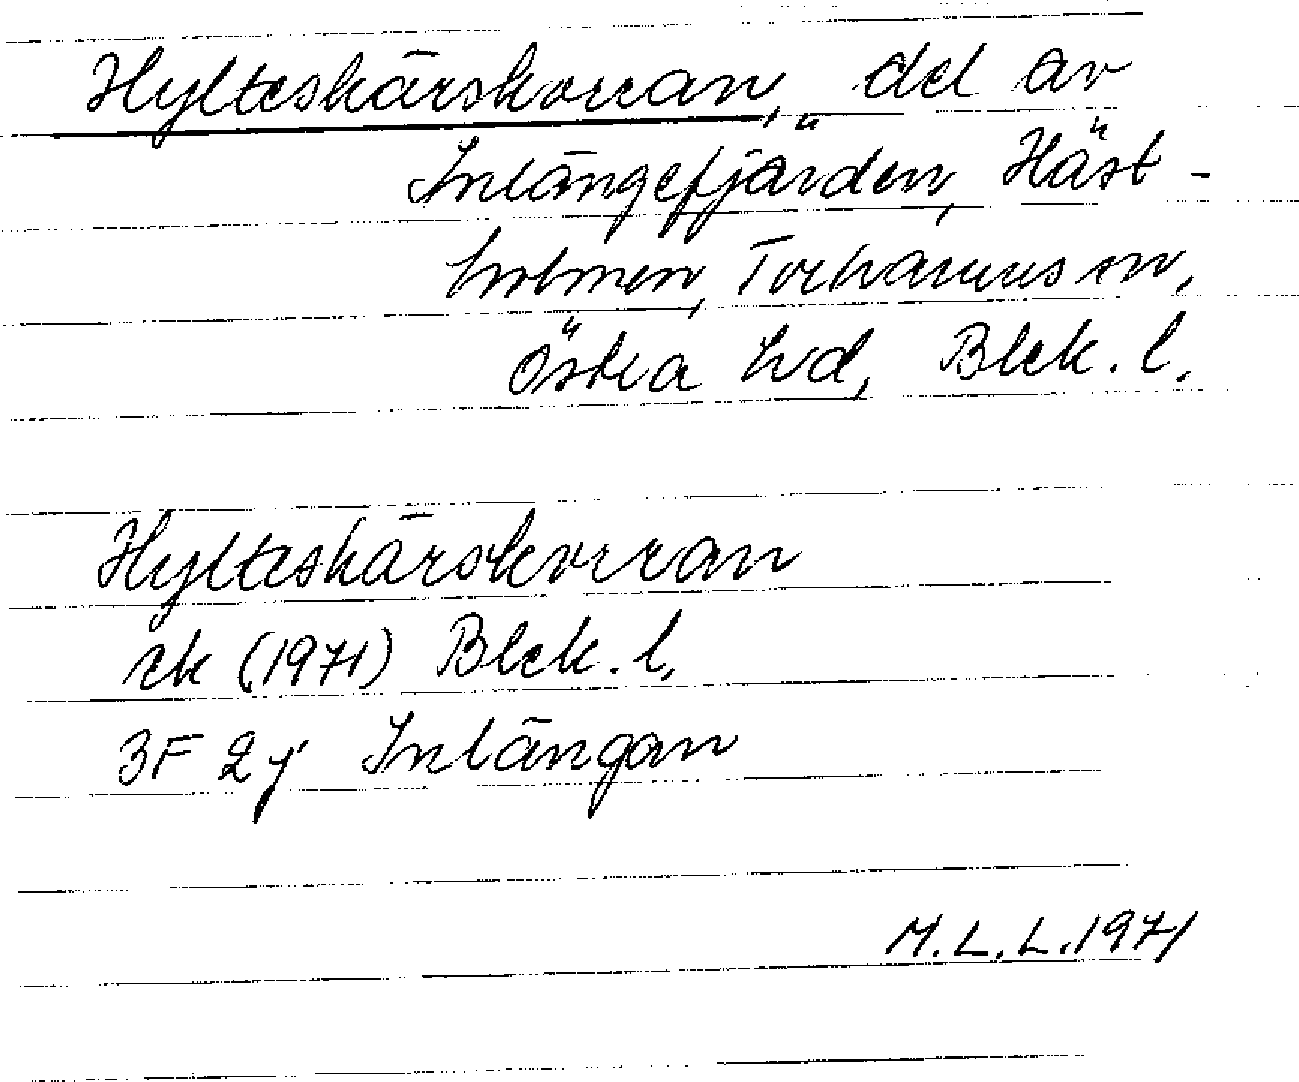 Hylteskärskorran, del av
Inlängefjärden, Häst-
holmen, Torhamns sn,
Östra hd, Blek. l.
Hylteskärskorran
rk (1971) Blek. l.
3F 2j Inlängan
M.L.L. 1971